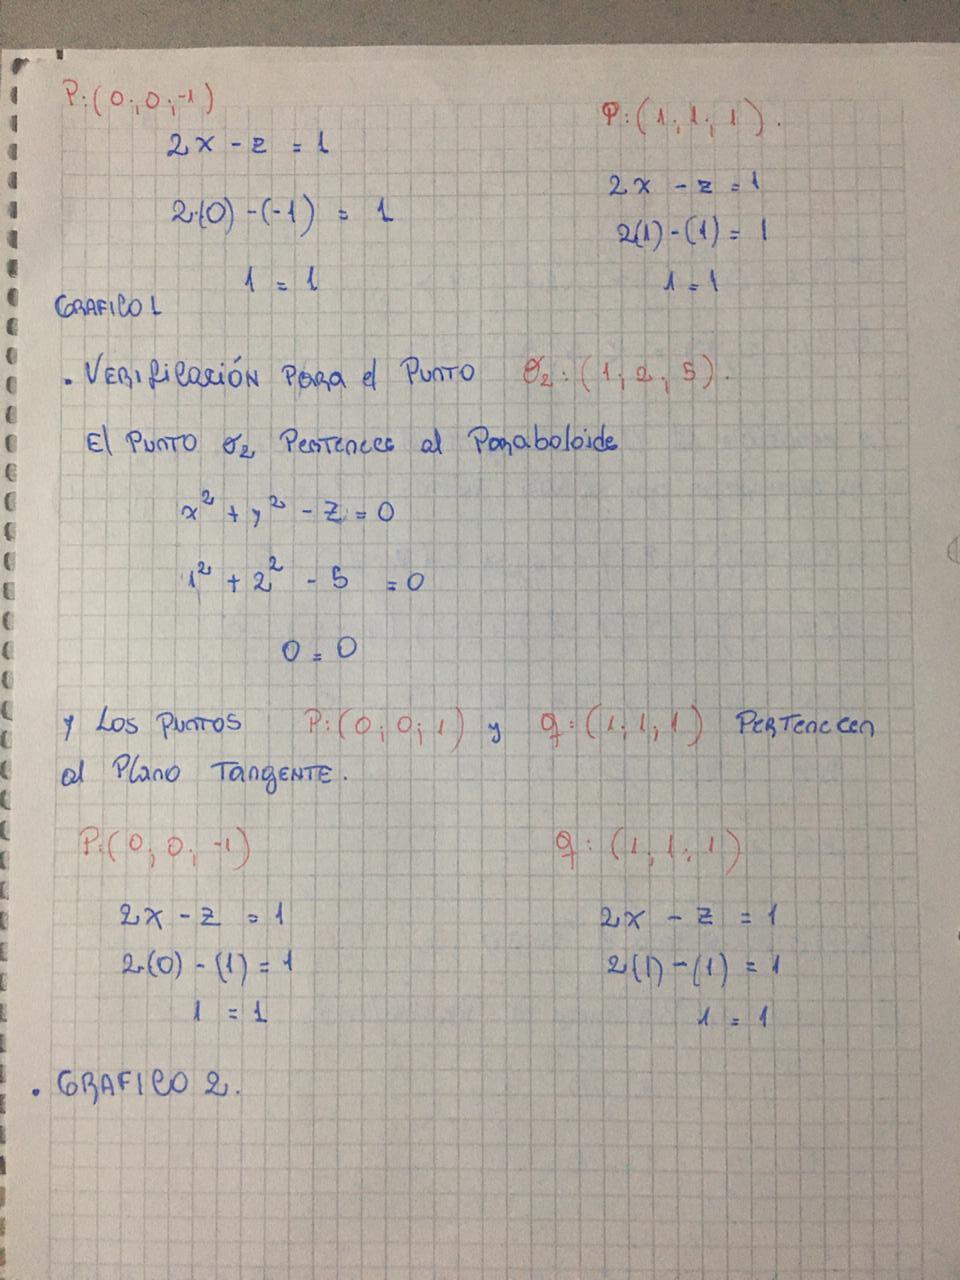 P:(0;0;-1)
2x - z = 1
2(0) - (-1) = 1
1 = 1
φ:(1;1;1).
2x - z = 1
2(1) - (1) = 1
1 = 1
GRAFICO 1
. VERIficación PARA el PUNTO σ2:(1;2;5).
El PUNTO σ2 PERTENECE al Paraboloide
x² + y² - z = 0
1² + 2² - 5 = 0
0 = 0
y Los PUNTOS P:(0;0;1) y q:(1;1;1) PERTENECEN
al Plano TangENTE.
P:(0;0;-1)
2x - z = 1
2(0) - (1) = 1
1 = 1
q:(1;1;1)
2x - z = 1
2(1) - (1) = 1
1 = 1
. GRAFICO 2.